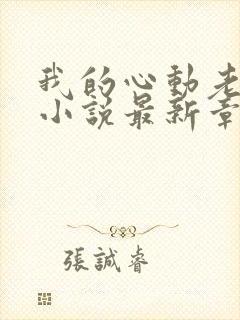 我的心動老
小說最新章
張誠睿